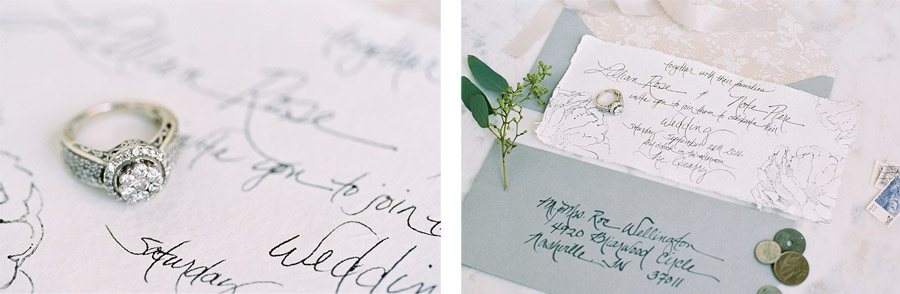 together
Lillian Rose
invite you to join t
Saturday
Weddin
together with their families
Lillian Rose & Nate
invite you to join them to celebrate their
Wedding
Saturday September 24th, 2016
in the afternoon
The Quarry
Mr. Mrs. Roe Wellington
4920 Briarwood Cycle
Nashville, TN
37011